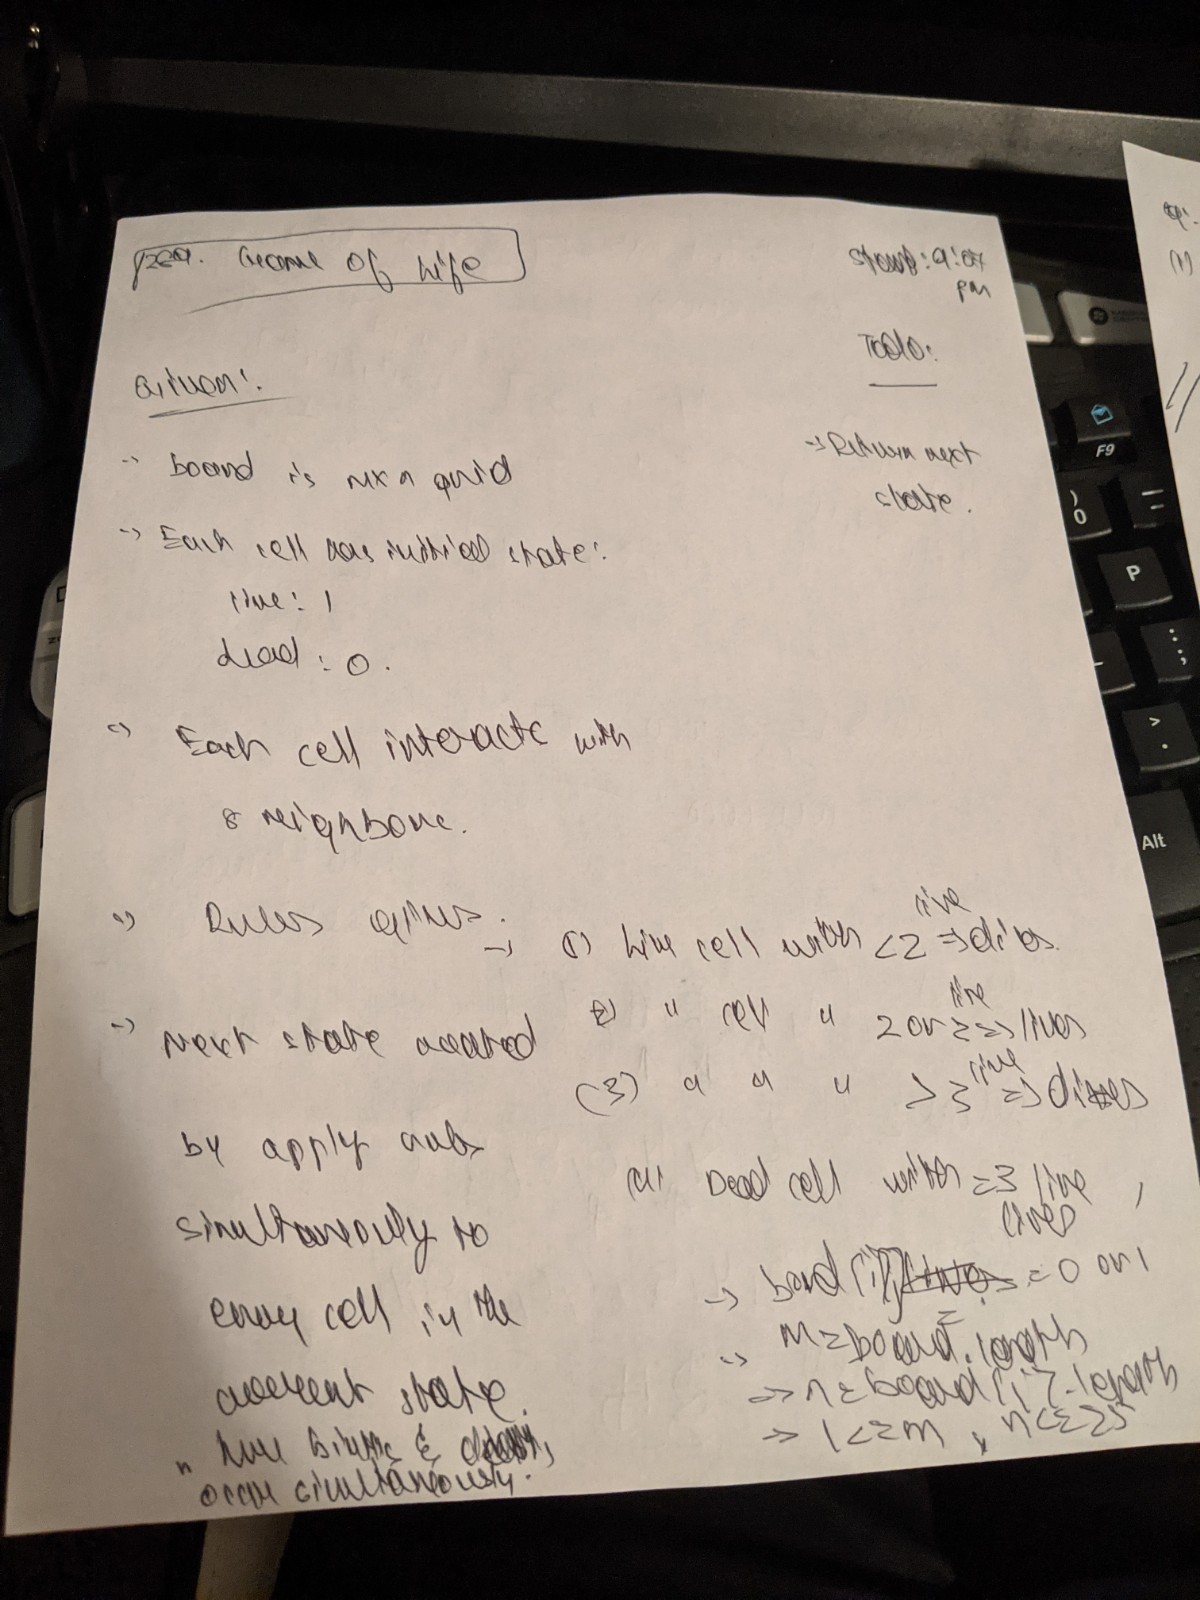 Game of Life
Start: 9:07
pm
Todo:
Given:
-> board is mxn grid
-> Return next
state.
-> Each cell has initial state:
live: 1
dead: 0.
-> Each cell interacts with
8 neighbors.
-> Rules given:
-> (1) Live cell with <2 live => dies.
(2) " cell " 2 or 3 live => lives
(3) " " " >3 live => dies
(4) Dead cell with =3 live,
lives
-> Next state created
by apply rules
simultaneously to
every cell in the
current state.
" here Births & deaths,
occur simultaneously.
-> board[i][j] = 0 or 1
-> m = board.length
-> n = board[i].length
-> 1 <= m, n <= 25
F9
)
0
=
P
:
;
>
.
Alt
(1)